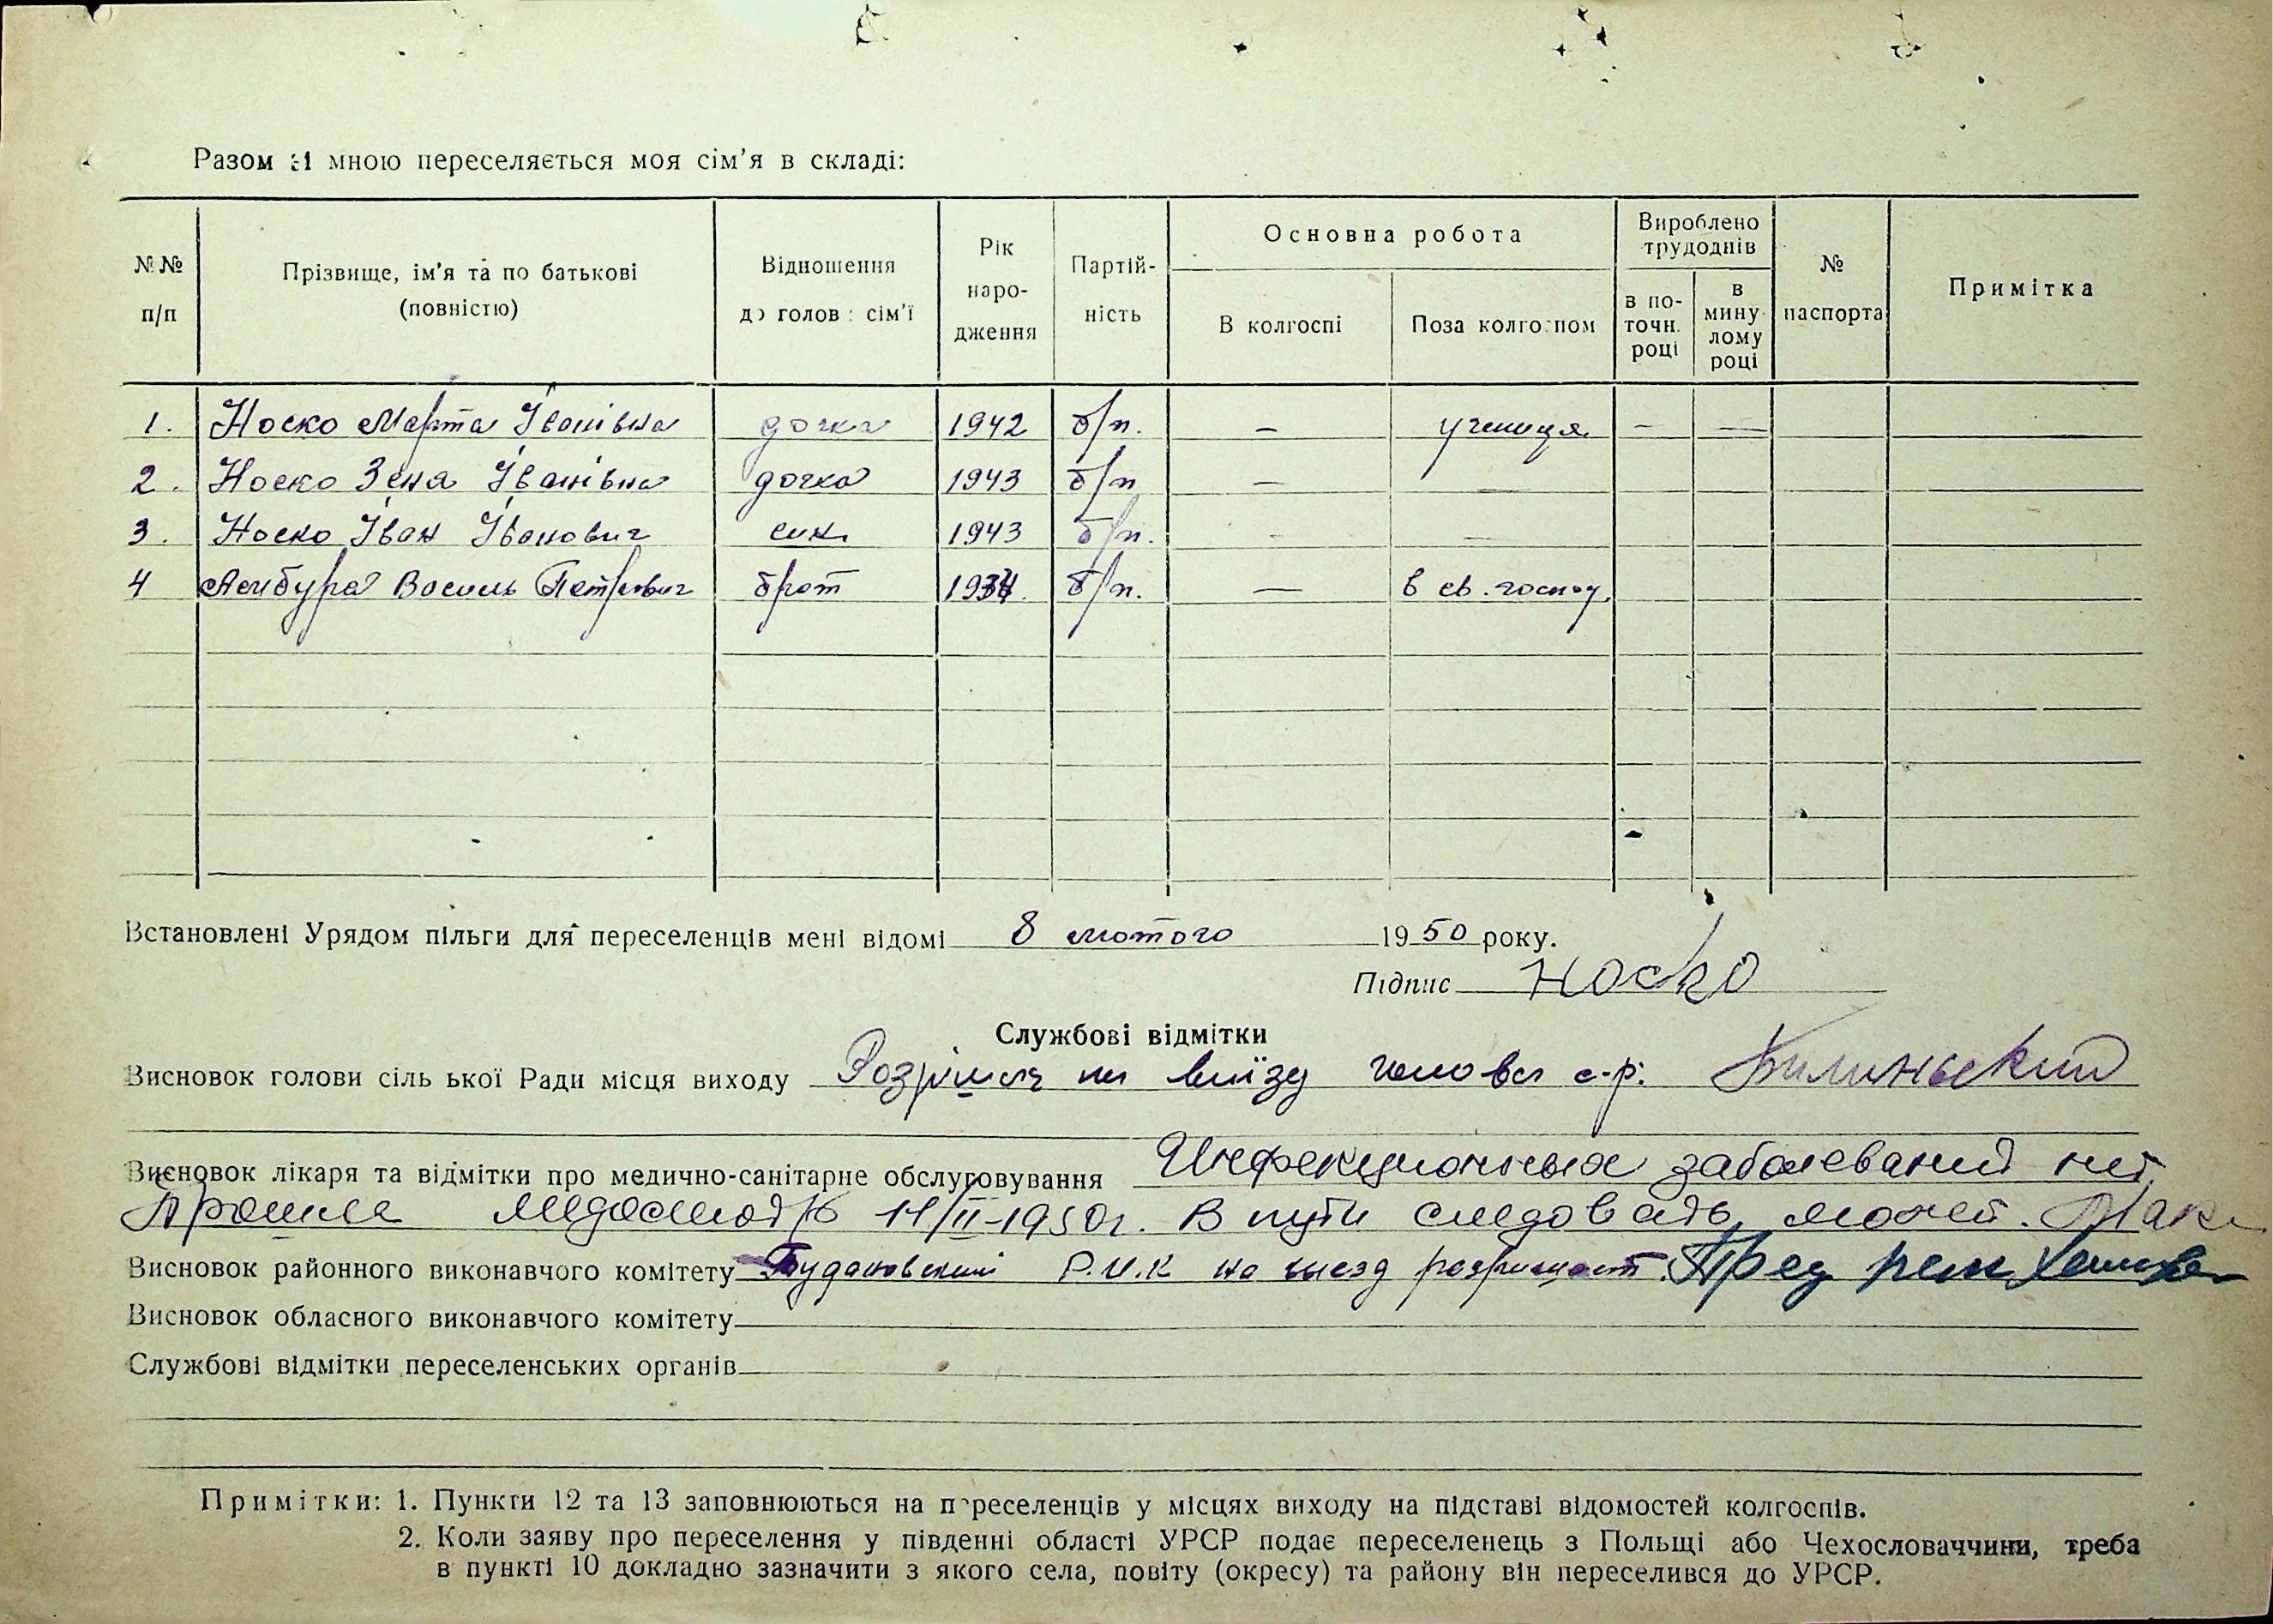 Разом зі мною переселяється моя сім'я в складі:
№№ п/п
Прізвище, ім'я та по батькові (повністю)
Відношення до голови сім'ї
Рік народження
Партійність
Основна робота
В колгоспі
Поза колгоспом
Вироблено трудоднів
в поточн. році
в минулому році
№ паспорта
Примітка
1. Носко Марта Іванівна дочка 1942 б/п. — учениця — —
2. Носко Зеня Іванівна дочка 1943 б/п — —
3. Носко Іван Іванович син 1943 б/п. - —
4 Василь Петрович брат 1934 б/п. — в св. господ.
Встановлені Урядом пільги для переселенців мені відомі 8 лютого 1950 року.
Підпис Носко
Службові відмітки
Висновок голови сільської Ради місця виходу Розрішаю на виїзд голова с-р:
Висновок лікаря та відмітки про медично-санітарне обслуговування Инфекционных заболеваний нет
Прошла медосмотр 11/II-1950г. В пути следовать может.
Висновок районного виконавчого комітету Будановский Р.И.К на выезд розришает. Пред рик
Висновок обласного виконавчого комітету
Службові відмітки переселенських органів
Примітки: 1. Пункти 12 та 13 заповнюються на переселенців у місцях виходу на підставі відомостей колгоспів.
2. Коли заяву про переселення у південні області УРСР подає переселенець з Польщі або Чехословаччини, треба
в пункті 10 докладно зазначити з якого села, повіту (окресу) та району він переселився до УРСР.